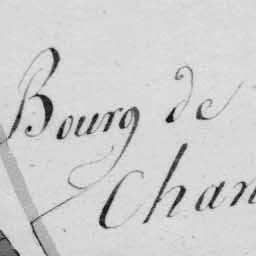 Bourg de
Chan